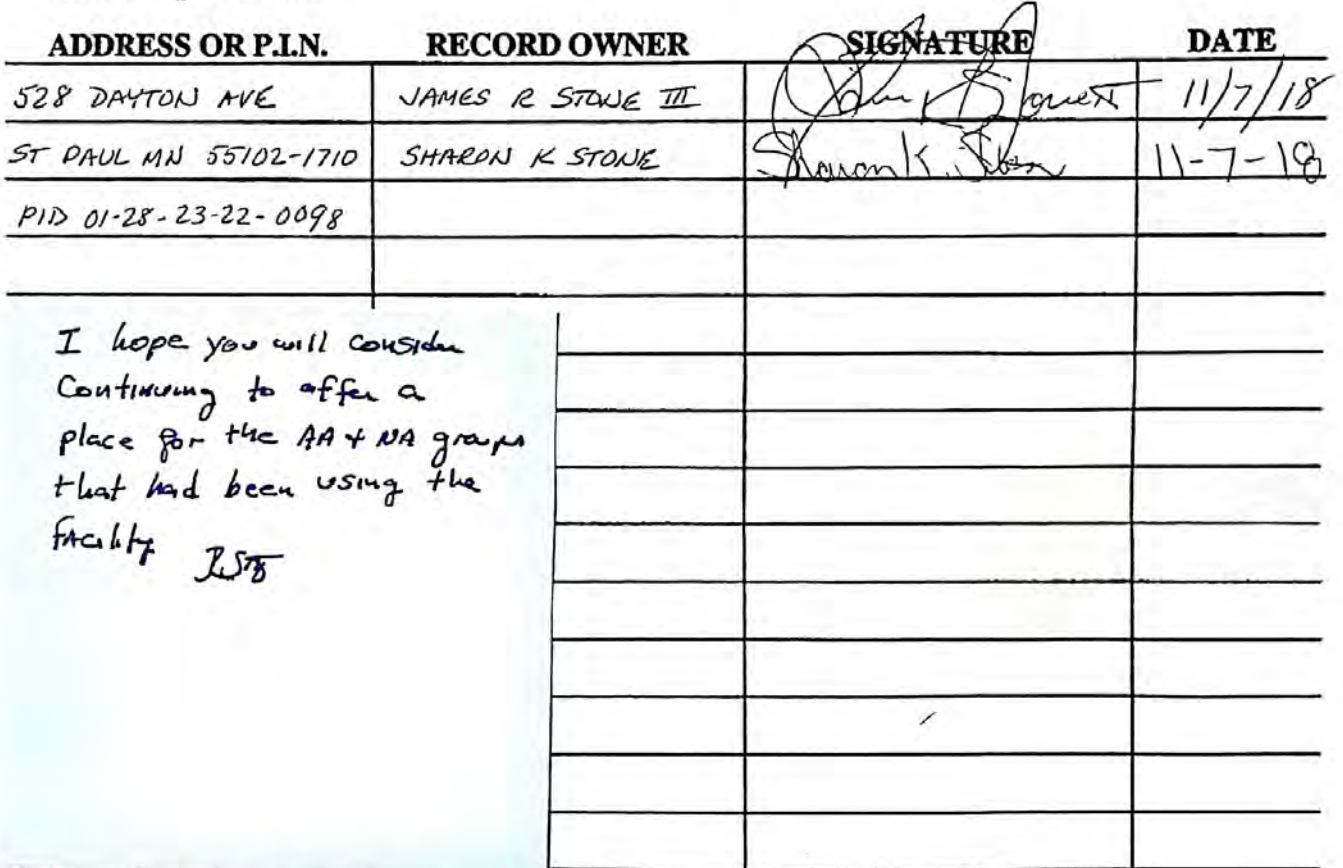 ADDRESS OR P.I.N. RECORD OWNER SIGNATURE DATE
528 DAYTON AVE JAMES R STONE III 11/7/18
ST PAUL MN 55102-1710 SHARON K STONE Sharon K. 11-7-18
PID 01-28-23-22-0098
I hope you will consider
Continuing to offer a
place for the AA + NA groups
that had been using the
facility